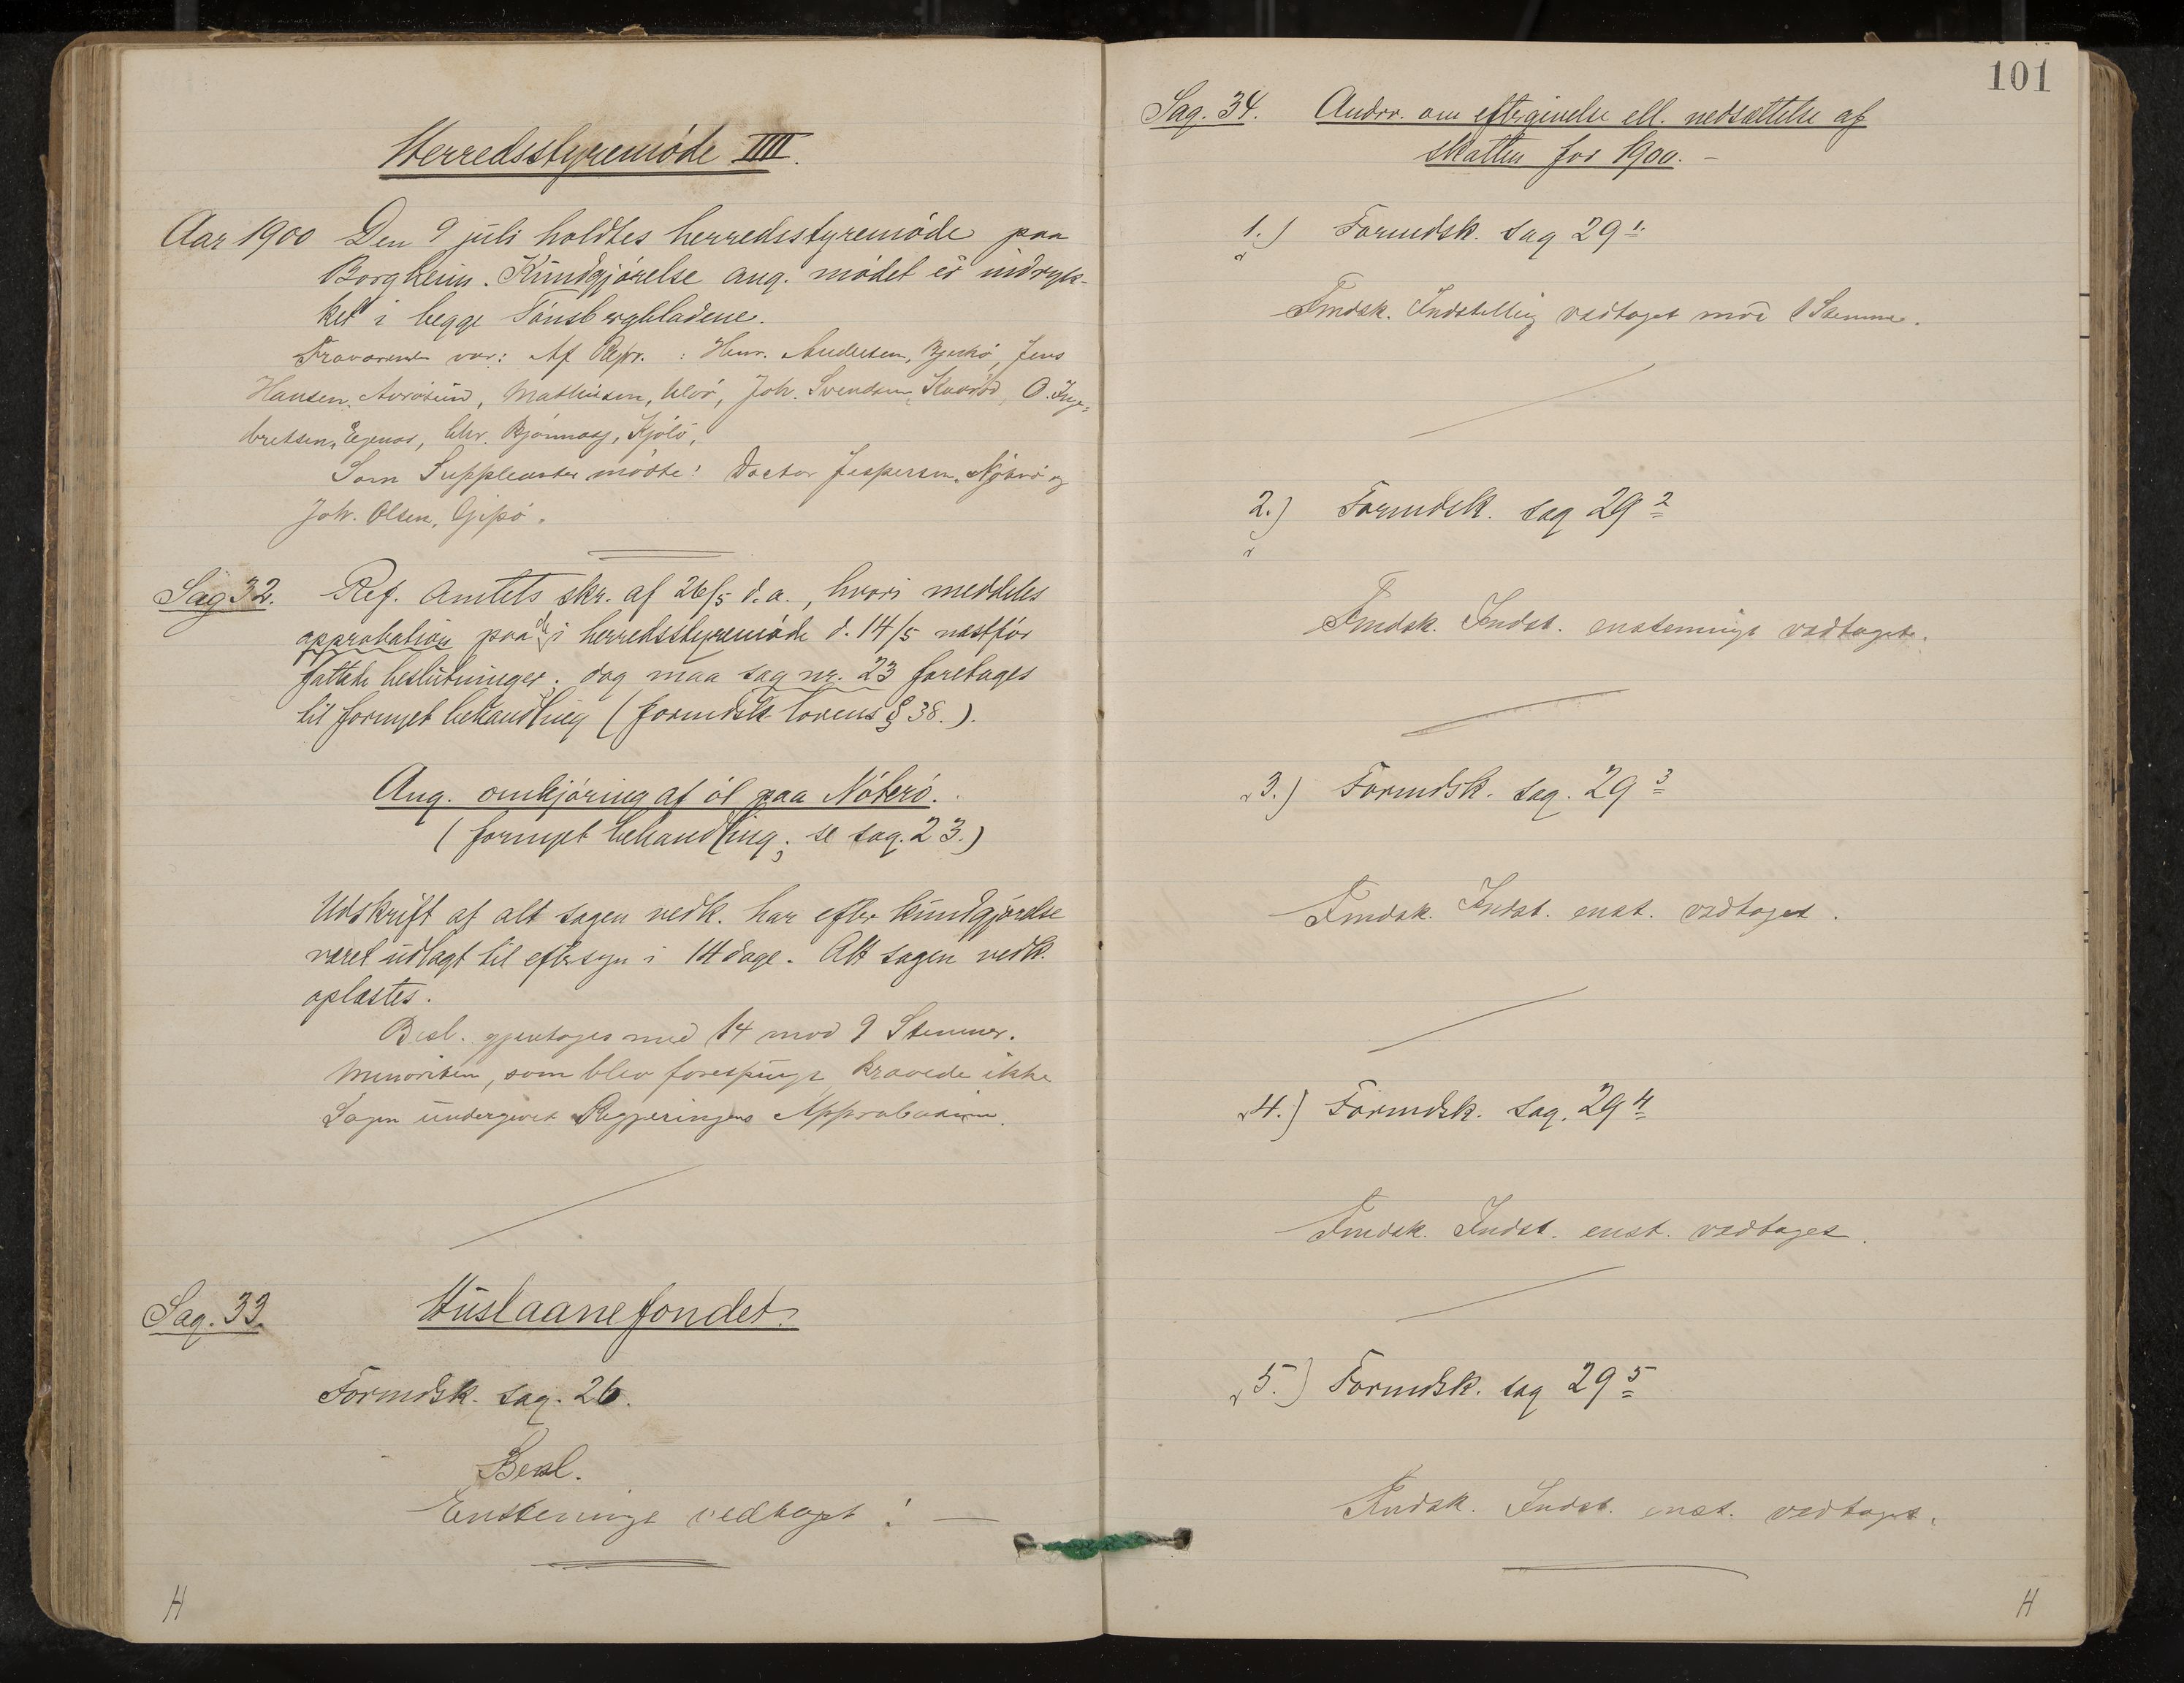 Herredsstyremöde IIII.
Aar 1900 Den 9 juli holdtes herredsstyremöde paa
Borgheim. Kundgjörelse ang. mödet er indryk-
ket i begge Tönsbergbladene.
Fraværende var: Af Repr. : Henr. Andersen, Jens
Hansen, Aarösund, Mathisen, Joh. Svendsen, O. Inge-
bretsen, Ekenæs, Chr. Bjönnæs, Kjölö,
Som Suppleanter mödte: Doctor Jespersen, og
Joh. Olsen, Gipö.
Sag 32. Ref. Amtets skr. af 26/5 d.a., hvori meddeles
approbation paa de i herredsstyremöde d. 14/5 næstför
fattede beslutninger; dog maa sag nr. 23 foretages
til fornyet behandling (formdsk. lovens § 38.).
Ang. omkjöring af öl paa Nöterö.
(fornyet behandling; se sag. 23.)
Udskrift af alt sagen vedk. har efter kundgjörelse
været udlagt til eftersyn i 14 dage. Alt sagen vedk.
oplæstes.
Besl. gjentages med 14 mod 9 Stemmer.
Minoriteten, som blev forespurgt krævede ikke
Sagen undergivet Regjeringens Approbation.
Sag. 33. Huslaanefondet.
Formdsk. sag. 26.
Besl.
Enstemmigt vedtaget! —
H
101
Sag. 34. Andrr. om eftergivelse ell. nedsættelse af
skatten for 1900. –
1.) Formdsk. sag 29 1.
Fmdsk. Indstilling vedtaget mod 1 Stemme.
2.) Formdsk. sag 29 2
Fmdsk. Indst. enstemmigt vedtaget.
3.) Formdsk. sag. 29 3
Fmdsk. Indst. enst. vedtaget.
4.) Formdsk. sag. 29 4
Fmdsk. Indst. enst. vedtaget.
5.) Formdsk. sag 29 5
Fmdsk. Indst. enst. vedtaget.
H